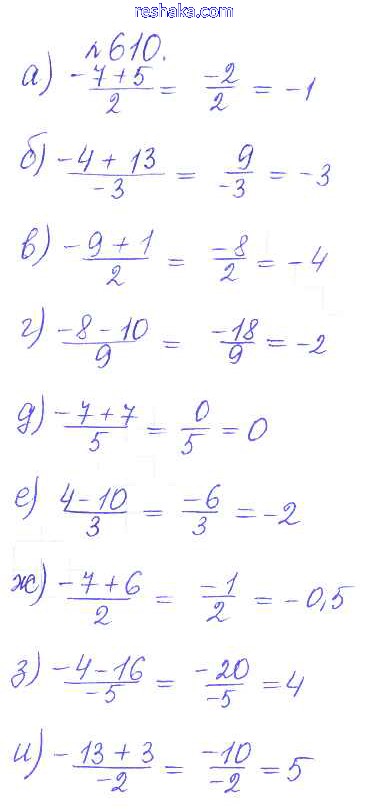 reshaka.com
№610.
а) (-7+5)/2 = -2/2 = -1
б) (-4+13)/-3 = 9/-3 = -3
в) (-9+1)/2 = -8/2 = -4
г) (-8-10)/9 = -18/9 = -2
д) (-7+7)/5 = 0/5 = 0
е) (4-10)/3 = -6/3 = -2
ж) (-7+6)/2 = -1/2 = -0,5
з) (-4-16)/-5 = -20/-5 = 4
и) (-13+3)/-2 = -10/-2 = 5